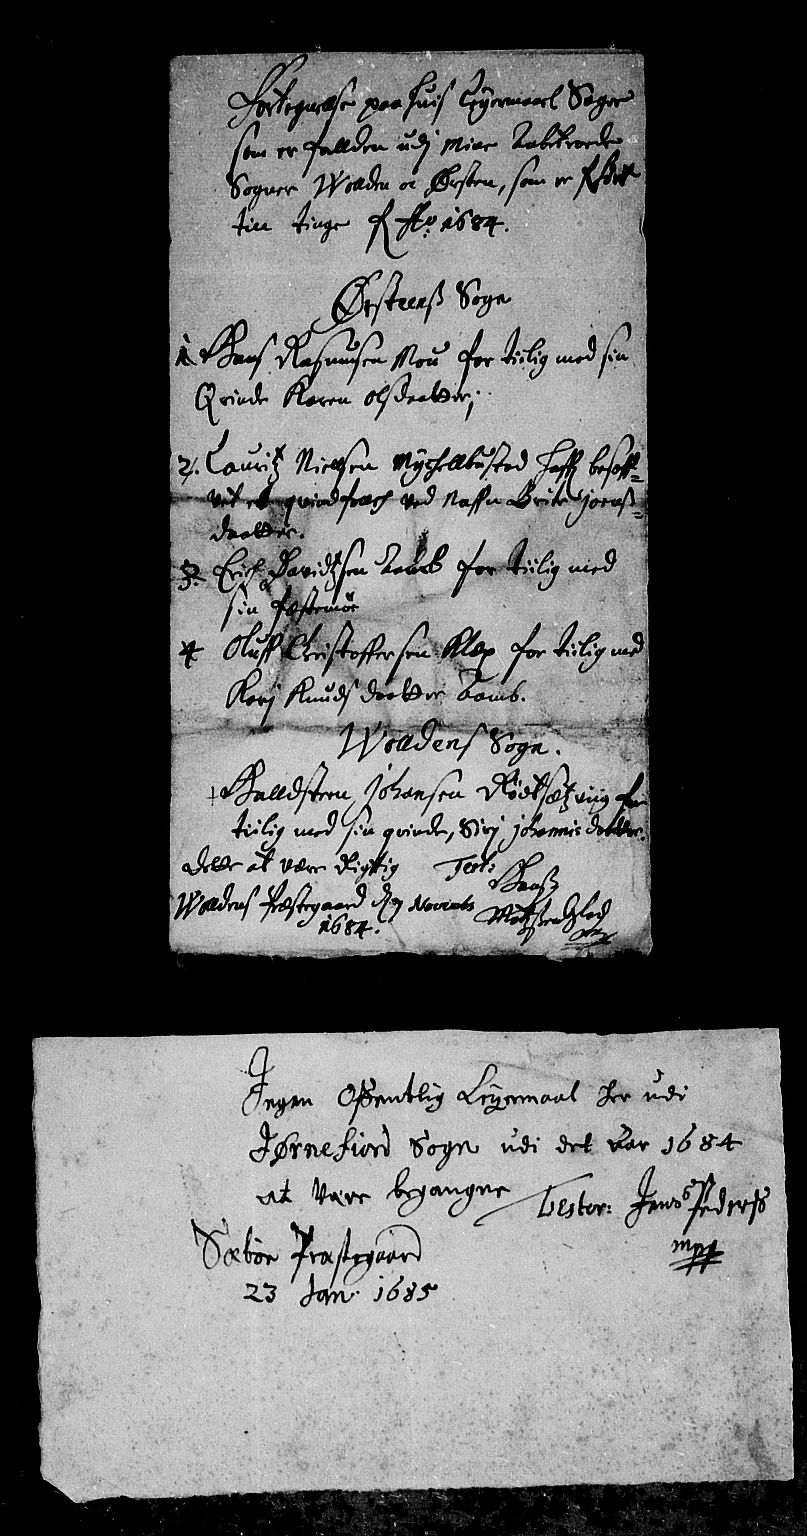 Fortegnelse paa huis Leyermaal Sager
som er fallden udj mine anbetroede
Sogner Wollden oc Ørsten, som er
till tinge Ao: 1684.
Ørsteens Sogn
1 Hans Rasmusen Mou for tiilig med sin
Qvinde Karen olsdaatter;
2. Lauritz Nielsen Mychellbusted haffr besoff-
vet et qvindfolch ved naffn Brite joens-
daatter.
3. Erich Davidtzsen for tiilig med
sin festemøe
4 Oluff Christoffersen Klep for tiilig med
Karj Knuds daatter
Wolldens Sogn.
Halldsteen Johansen for
tiilig med sin qvinde, Sirj johannis datter.
dette at være Rigttig Test:
Hans
Wolldens Præstegaard d. 7 Novemb
1684.
Ingen Offentlig Leyermaal her udi
Hørnefiord Sogn udi det aar 1684
at være begangne
Testor: Jens Peders
mpp
Sæbøe Præstegaard
23 Jan: 1685